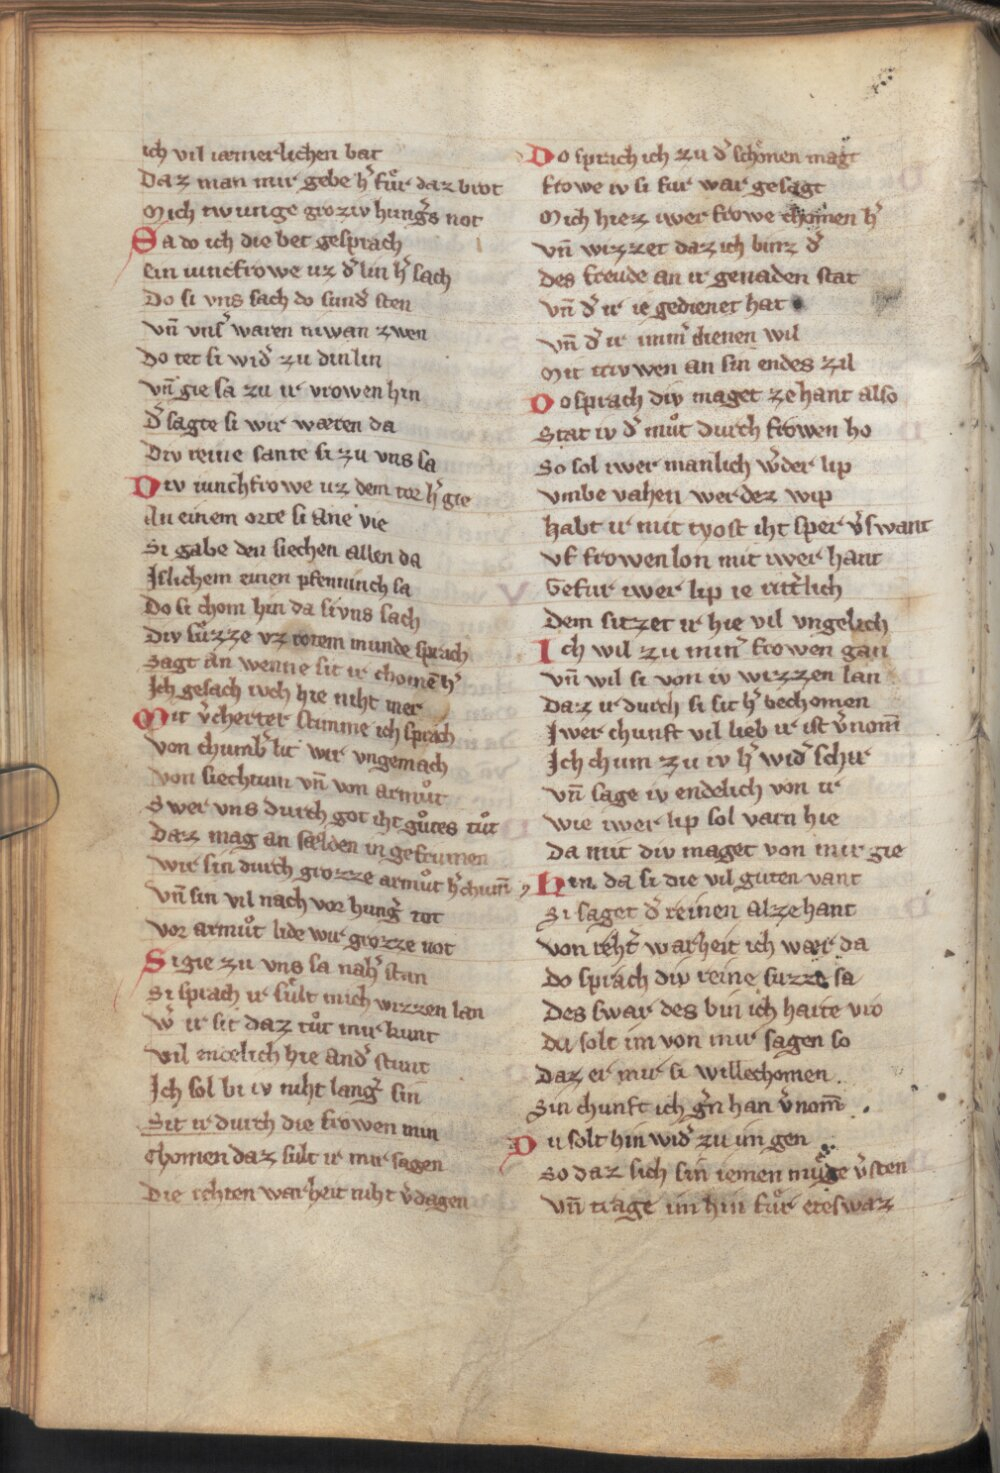 ich vil iæmerlichen bat
Daz man mir gebe h͛ fuͦr daz brot
Mich twunge groziv hung͛s not
Sa do ich die bet gesprach
ein iuncfrowe uz d͛ lin h͛ sach
Do si vns sach do sund͛ sten
vn̄ vns͛ waren niwan zwen
Do tet si wid͛ zu din lin
vn̄ gie sa zu ir vrowen hin
d͛ sagte si wir wæren da
Div reine sante si zu vns sa
Div iunchfrowe uz dem tor h͛ gie
An einem orte si ane vie
Si gabe den siechen allen da
Islichem einen pfenninch sa
Do si chom hin da si vns sach
Div suͤzze vz rotem munde sprach
Sagt an wenne sit ir chomē h͛
Ich gesach ivch hie niht mer
Mit v͛cherter stimme ich sprach
von chumb͛ lit wir vngemach
von siechtum vn̄ von armuͦt
Swer vns durch got iht guͦtes tuͦt
Daz mag an sælden in gefrumen
wir sin durch grozze armuͦt h͛ chum̄
vn̄ sin vil nach vor hung͛ tot
vor armuͦt lide wir grozze not
Si gie zu vns sa nah͛ stan
Si sprach ir suͤlt mich wizzen lan
w͛ ir sit daz tuͦt mir kunt
vil endelich hie and͛ stunt
Ich sol bi iv niht lang͛ sin
Sit ir durch die frowen min
Chomen daz sult ir mir sagen
Die rehten warheit niht v͛dagen
Do sprach ich zu d͛ schonen magt
frowe iv si fur war gesagt
Mich hiez iwer frowe chomen h͛
vn̄ wizzet daz ich binz d͛
des freude an ir genaden stat
vn̄ d͛ ir ie gedienet hat
vn̄ d͛ ir imm͛ dienen wil
Mit triwen an sin endes zil
Do sprach div maget ze hant also
Stat iv d͛ muͦt durch frowen ho
So sol iwer manlich w͛der lip
vmbe vahen werdez wip
habt ir mit tyost iht sper v͛swant
vf frowen lon mit iwer hant
Gefur iwer lip ie ritt͛lich
Dem sitzet ir hie vil vngelich
Ich wil zu min͛ frowen gan
vn̄ wil si von iv wizzen lan
Daz ir durch si sit h͛ bechomen
Iwer chunft vil lieb ir ist v͛nom̄
Ich chum zu iv h͛ wid͛ schir
vn̄ sage iv endelich von ir
wie iwer lip sol varn hie
Da mit div maget von mir gie
Hin da si die vil guten vant
Si saget d͛ reinen alzehant
von reht͛ warheit ich wær da
do sprach div reine suzze sa
Des swar des bin ich harte vro
du solt im von mir sagen so
Daz er mir si willechomen.
Sin chunft ich g͛n han v͛nom̄.
Du solt hin wid͛ zu im gen
So daz sich sin iemen muge v͛sten
vn̄ trage im hin fuͦr eteswaz